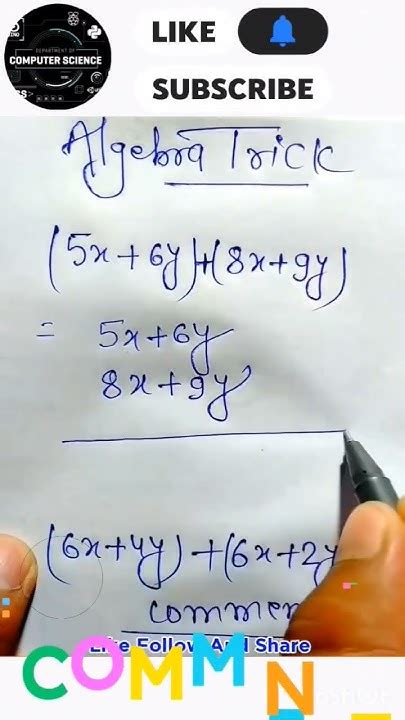 DEPARTMENT OF
COMPUTER SCIENCE
LIKE
SUBSCRIBE
Algebra Trick
(5x+6y)+(8x+9y)
= 5x+6y
8x+9y
(6x+4y)+(6x+2y
Like Follow And Share